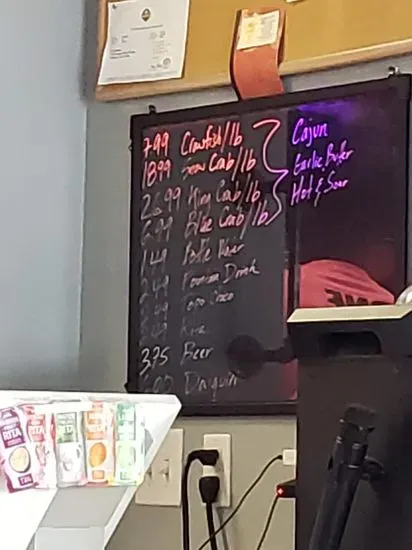 7.99 Crawfish/lb
18.99 Snow Crab/lb
26.99 King Crab/lb
6.99 Blue Crab/lb
1.49 Bottle Water
2.49 Fountain Drink
Topo Chico
3.75 Beer
Daiquiri
Cajun
Garlic Butter
Hot & Sour
RITA
RITA
RITA
RITA